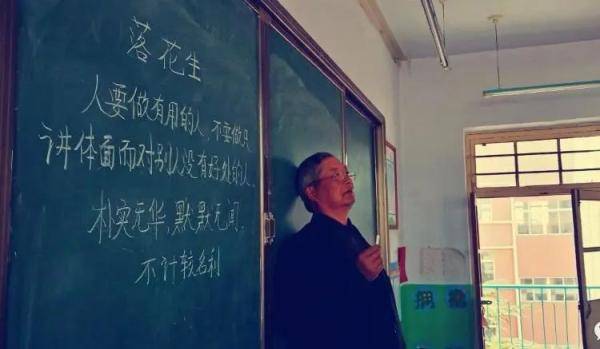 落花生
人要做有用的人,不要做只
讲体面而对别人没有好处的人。
朴实无华、默默无闻、
不计较名利